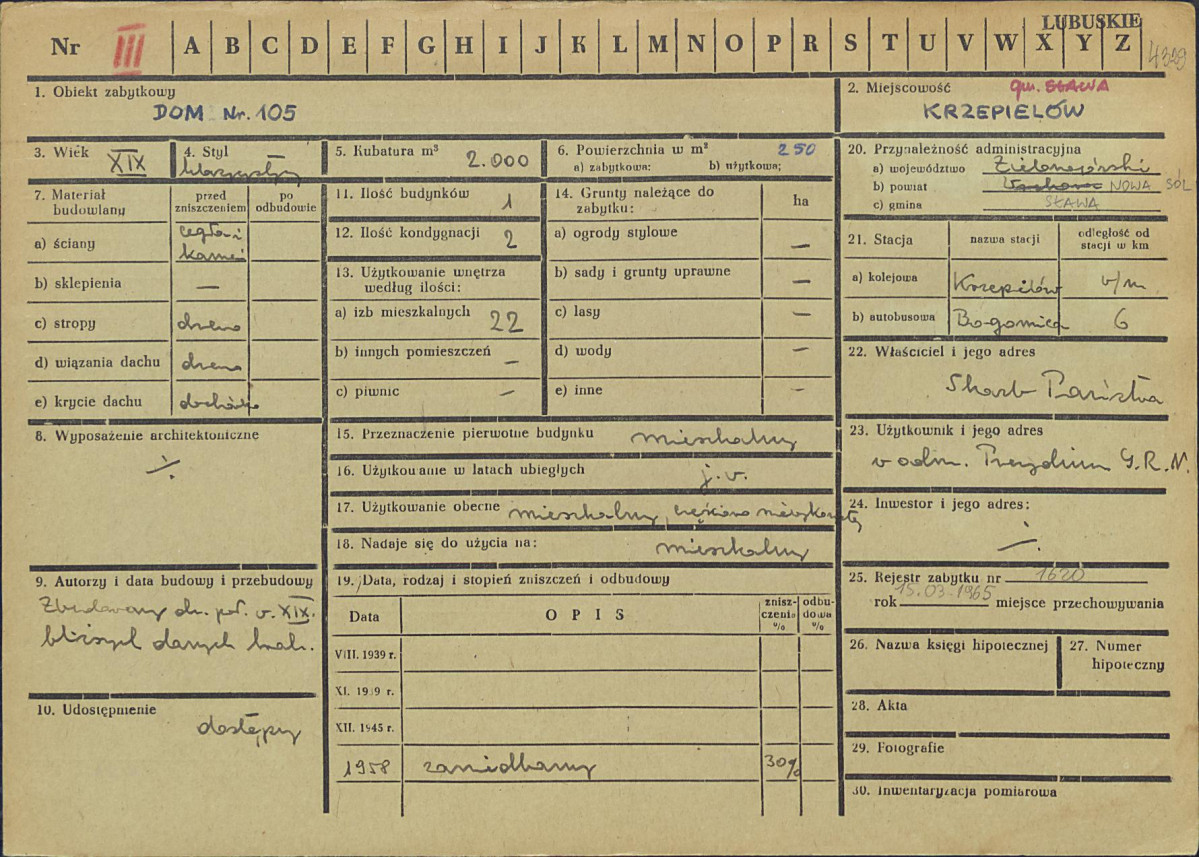 LUBUSKIE
Nr III A B C D E F G H I J K L M N O P R S T U V W X Y Z
4329
1. Obiekt zabytkowy
DOM Nr. 105
2. Miejscowość gm. SŁAWA
KRZEPIELÓW
3. Wiek XIX
4. Styl klasycystyczny
5. Kubatura m³ 2.000
6. Powierzchnia w m² 250
a) zabytkowa: b) użytkowa;
7. Materiał budowlany
przed zniszczeniem
po odbudowie
a) ściany cegła i kamień
b) sklepienia —
c) stropy drewno
d) wiązania dachu drewno
e) krycie dachu dachówka
8. Wyposażenie architektoniczne
÷
9. Autorzy i data budowy i przebudowy
Zbudowany dr. poł. w. XIX.
bliższych danych brak.
10. Udostępnienie
dostępny
11. Ilość budynków 1
12. Ilość kondygnacji 2
13. Użytkowanie wnętrza
według ilości:
a) izb mieszkalnych 22
b) innych pomieszczeń —
c) piwnic —
14. Grunty należące do
zabytku: ha
a) ogrody stylowe —
b) sady i grunty uprawne —
c) lasy —
d) wody —
e) inne —
15. Przeznaczenie pierwotne budynku mieszkalny
16. Użytkowanie w latach ubiegłych j. w.
17. Użytkowanie obecne mieszkalny, częściowo nieużytkowany
18. Nadaje się do użycia na: mieszkalny
19. Data, rodzaj i stopień zniszczeń i odbudowy
Data OPIS zniszczenia % odbudowa %
VIII. 1939 r.
XI. 1939 r.
XII. 1945 r.
1958 zaniedbany 30%
20. Przynależność administracyjna
a) województwo Zielonogórski
b) powiat NOWA SÓL
c) gmina SŁAWA
21. Stacja nazwa stacji odległość od stacji w km
a) kolejowa Krzepielów w/m
b) autobusowa 6
22. Właściciel i jego adres
Skarb Państwa
23. Użytkownik i jego adres
w adm. Prezydium G.R.N.
24. Inwestor i jego adres:
÷
25. Rejestr zabytku nr 1620
rok 15.03.1965 miejsce przechowywania
26. Nazwa księgi hipotecznej
27. Numer hipoteczny
28. Akta
29. Fotografie
30. Inwentaryzacja pomiarowa